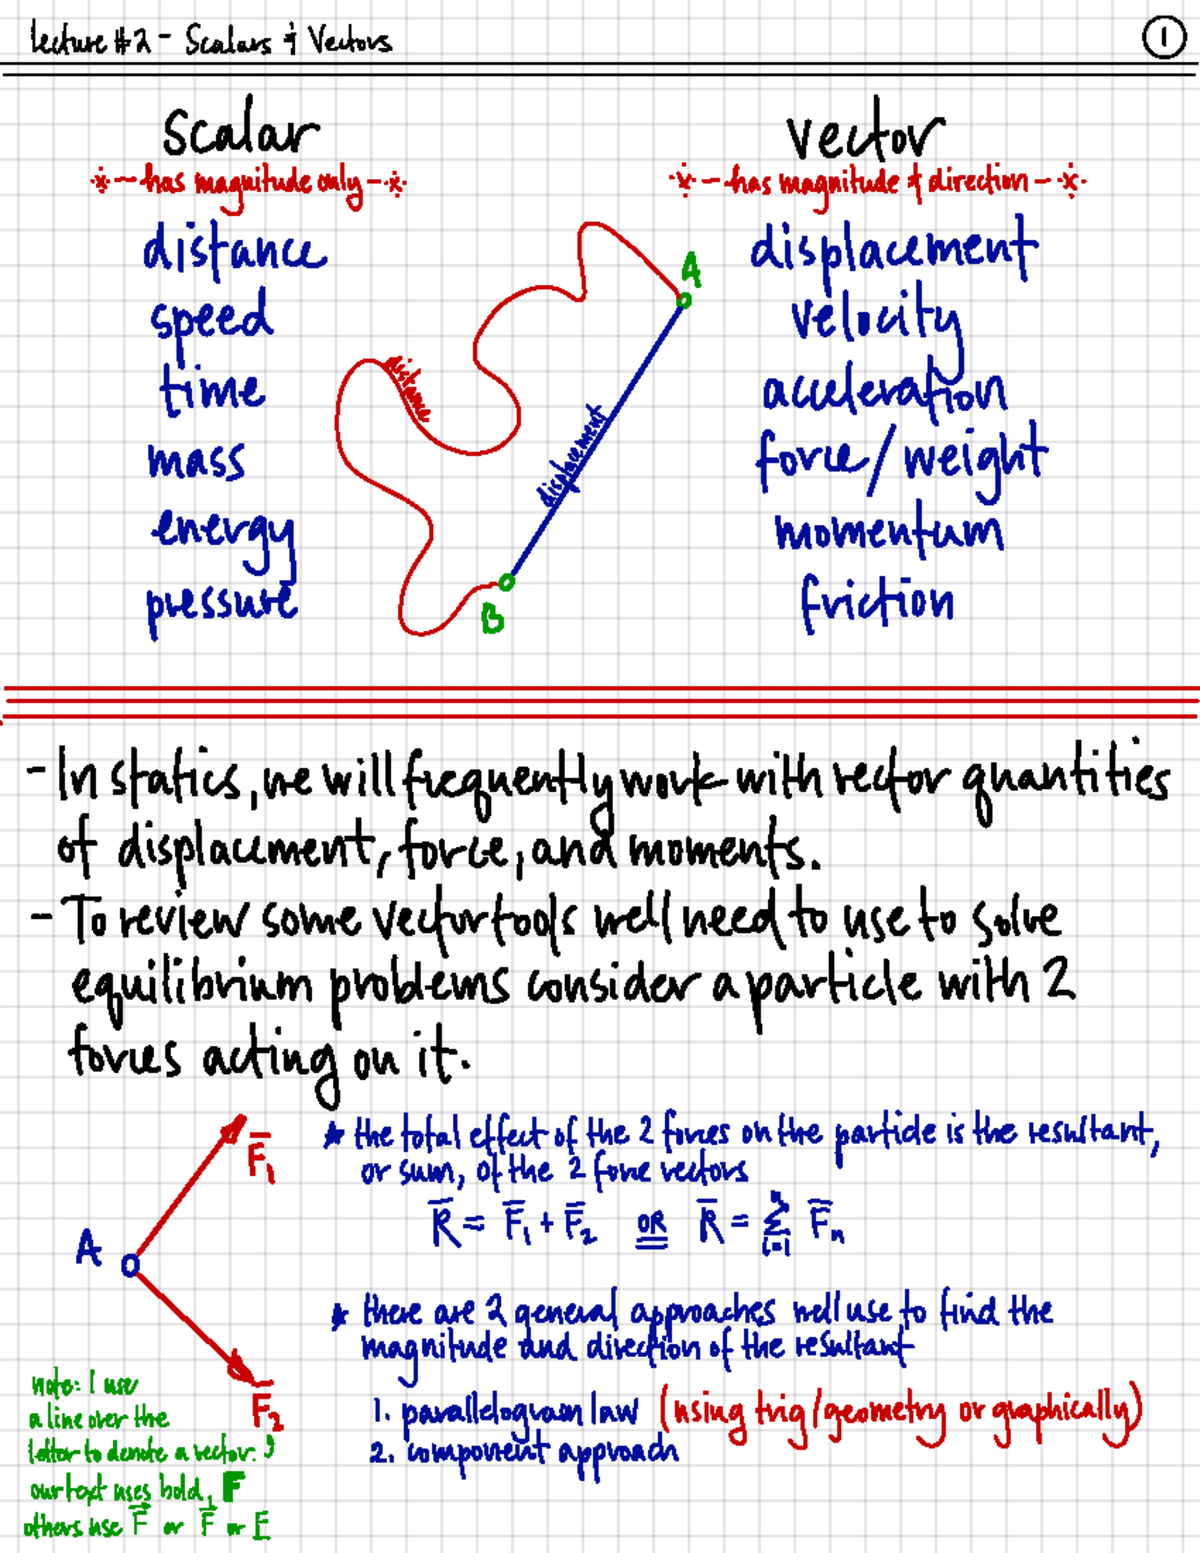 Lecture #2 - Scalars & Vectors
1
Scalar
* - has magnitude only - *
distance
speed
time
mass
energy
pressure
distance
displacement
A
B
Vector
* - has magnitude & direction - *
displacement
velocity
acceleration
force/weight
momentum
friction
- In statics, we will frequently work with vector quantities
of displacement, force, and moments.
- To review some vector tools we'll need to use to solve
equilibrium problems consider a particle with 2
forces acting on it.
A
F̅₁
F̅₂
* the total effect of the 2 forces on the particle is the resultant,
or sum, of the 2 force vectors
R̅ = F̅₁ + F̅₂ OR R̅ = Σ F̅ₙ
n
i=1
* there are 2 general approaches we'll use to find the
magnitude and direction of the resultant
1. parallelogram law (using trig/geometry or graphically)
2. component approach
note: I use
a line over the
letter to denote a vector.
our text uses bold, F
others use F⃗ or F⃑ or F̲